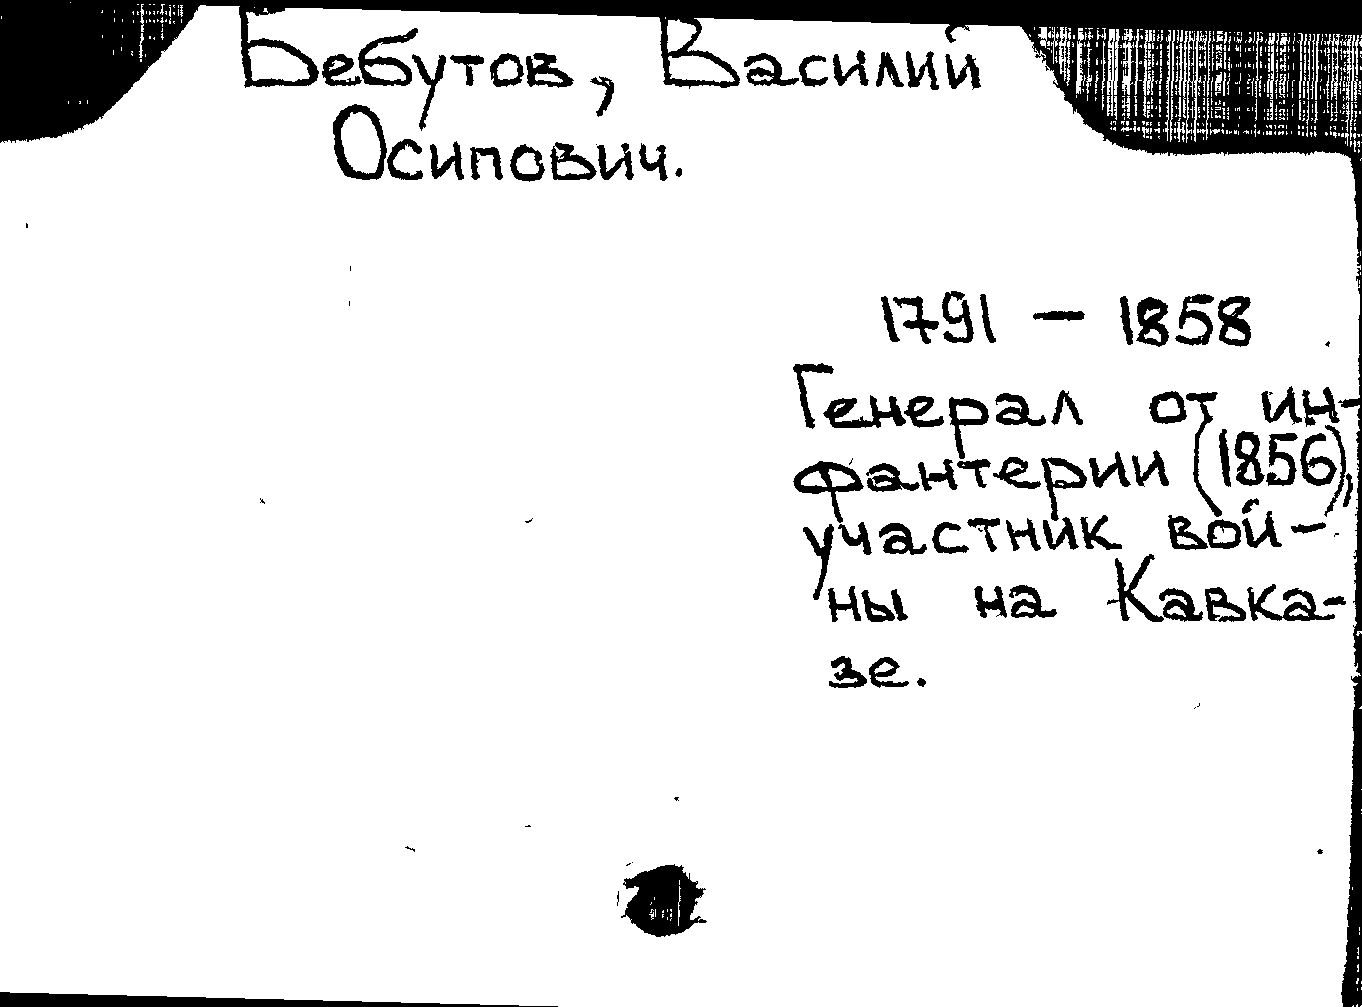 Бебутов, Василий
Осипович.
1791 — 1858
Генерал от ин-
фантерии (1856),
участник вой-
ны на Кавка-
зе.